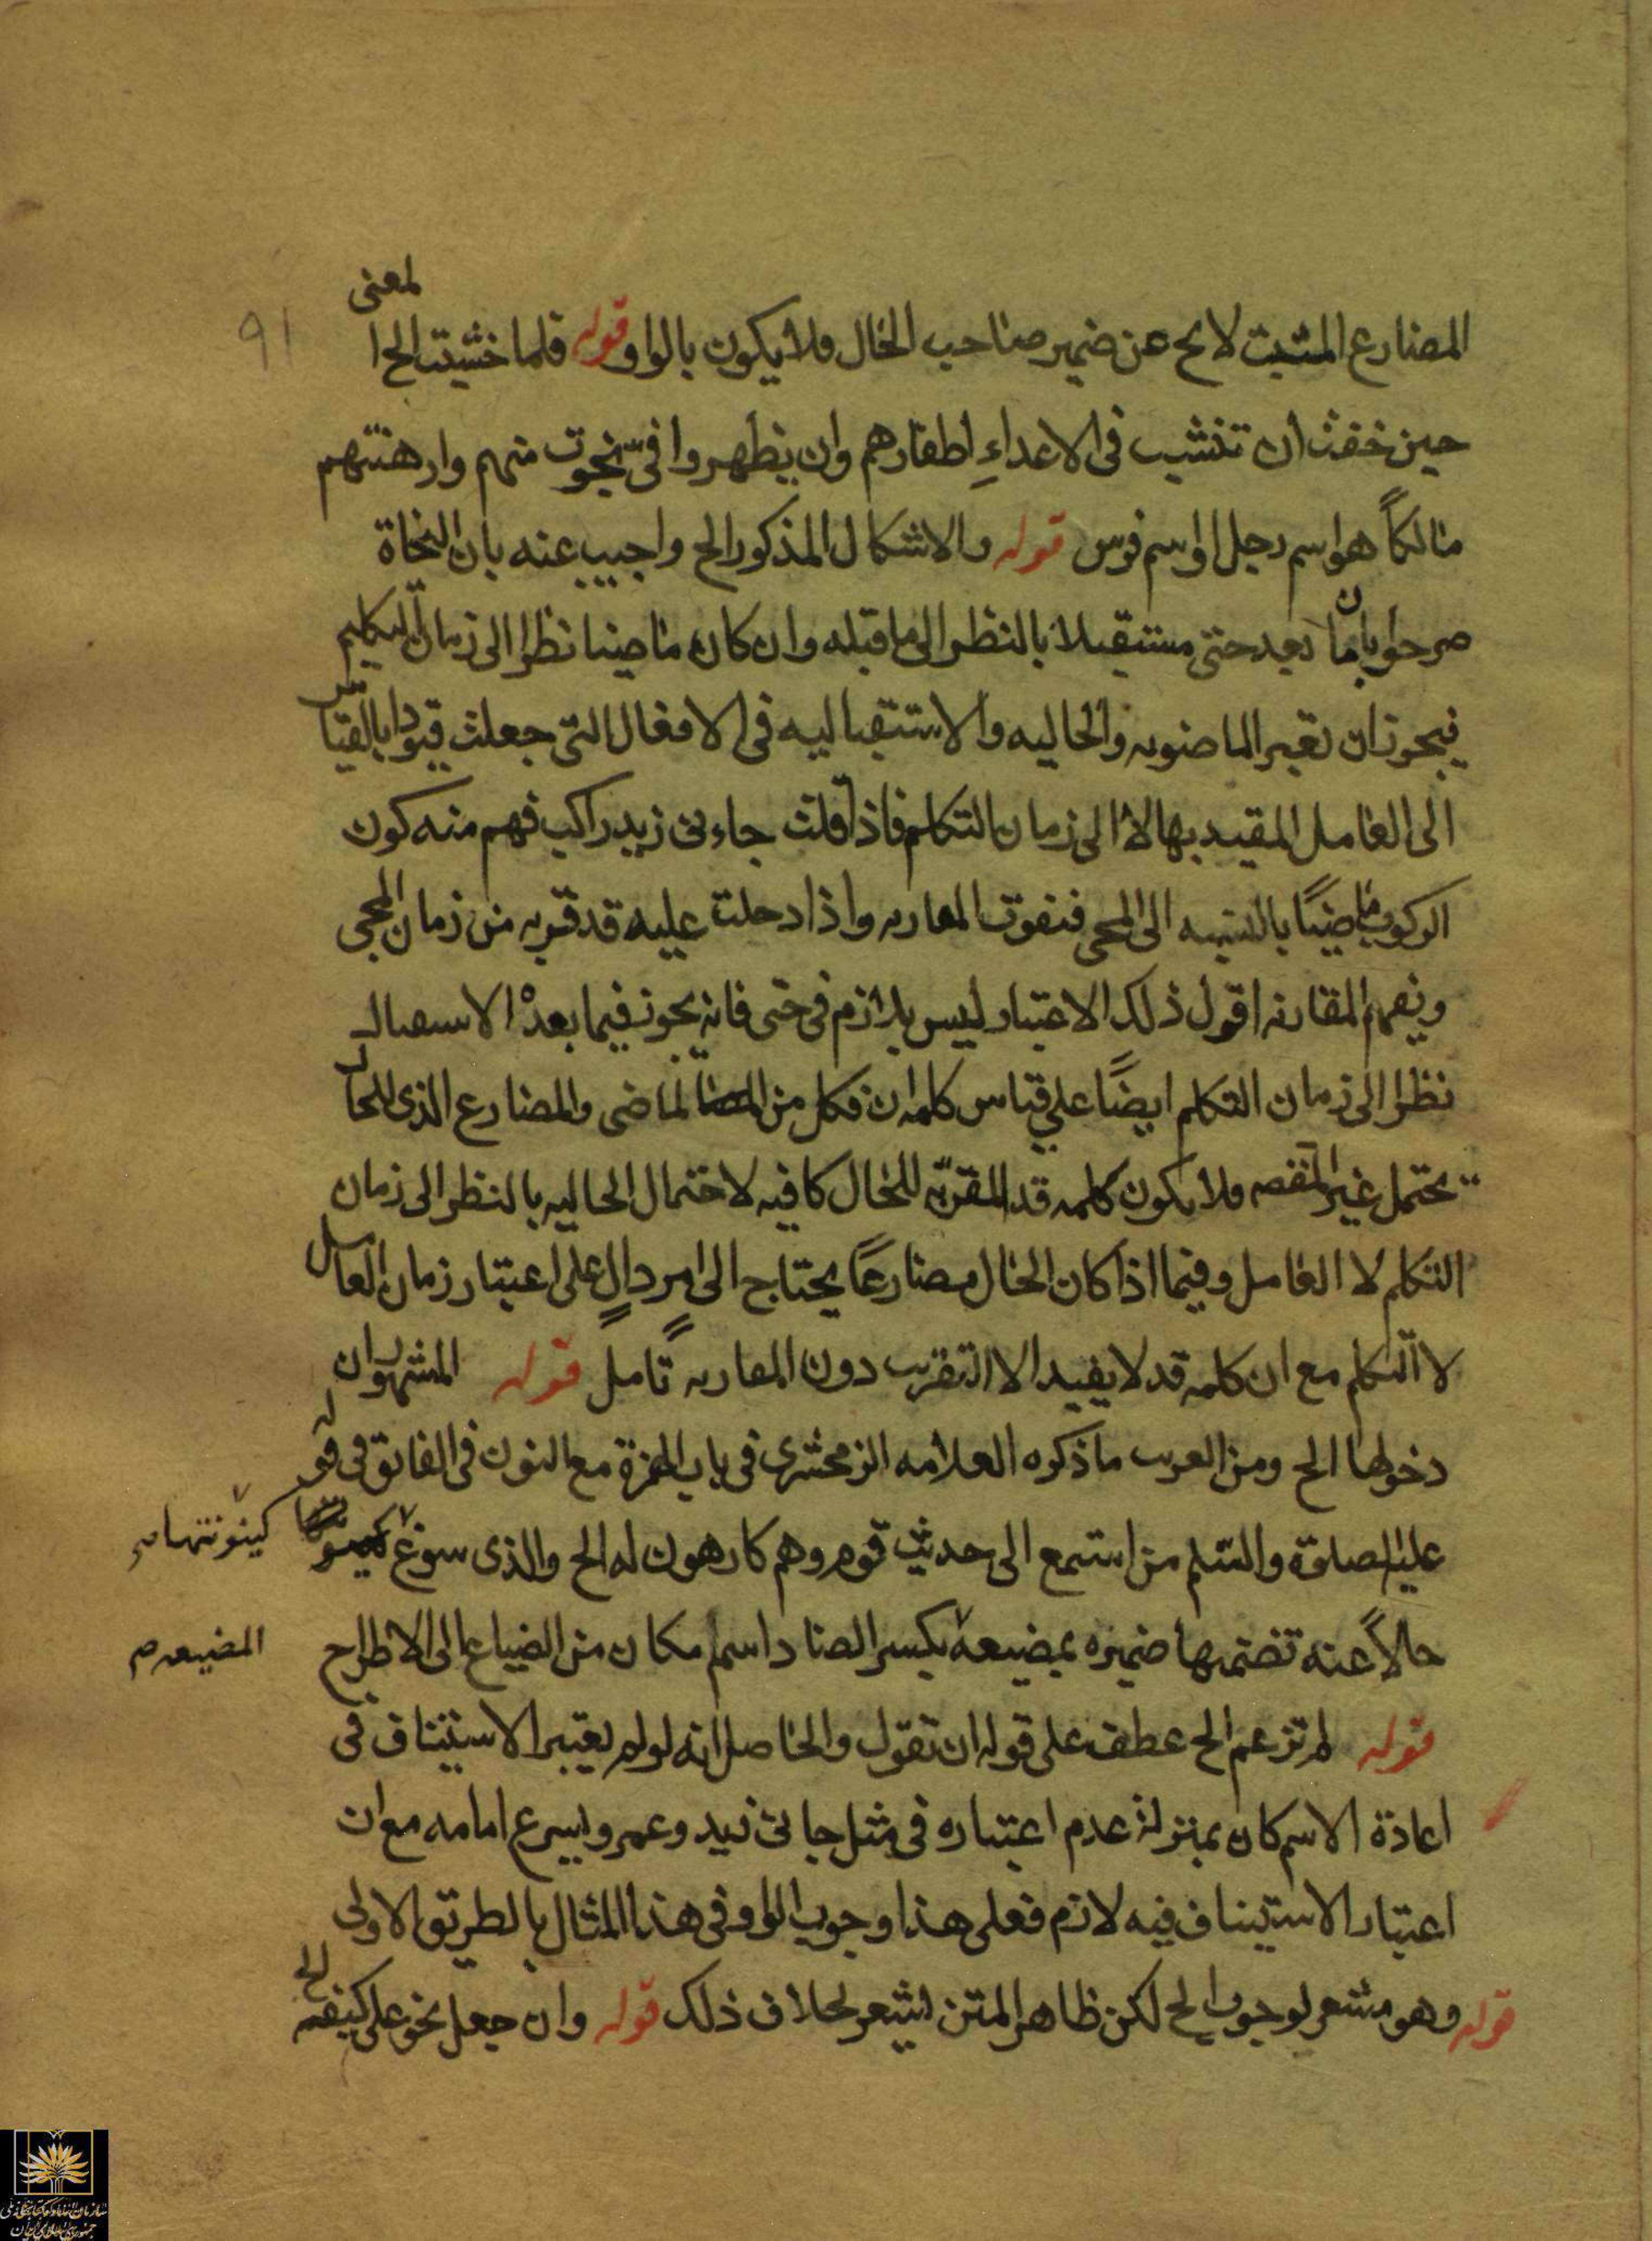 المضارع المثبت لا يخ عن ضمير صاحب الحال فلا يكون بالواو قوله فلما خشيت الخ المعنى
حين خفت ان تنشب فى الاعداءِ اظفارهم وان يظهروا فىّ نجوت منهم وارهنتهم
مالكاً هو اسم رجل او اسم فرس قوله والاشكال المذكور الخ واجيب عنه بان النحاة
صرحوا بان ما بعد حتى مستقبلا بالنظر الى ما قبله وان كان ماضيا نظرا الى زمان التكلم
فيجوز ان تعتبر الماضويه والحاليه والاستقباليه فى الافعال التى جعلت قيودا بالقياس
الى العامل المقيد بها لا الى زمان التكلم فاذا قلت جاءنى زيد راكب فهم منه كون
الركوب ماضيًا بالنسبه الى المجى فتفوت المقارنه واذا دخلت عليه قد قربه من زمان المجى
ويفهم المقارنه اقول ذلك الاعتبار ليس بلازم فى حتى فانه يجوز فيما بعده الاستقبال
نظرا الى زمان التكلم ايضًا على قياس كلمه ان فكل من الماضى والمضارع الذى للحال
يحتمل غير المقصود فلا يكون كلمه قد المقربه للحال كافيه لاحتمال الحاليه بالنظر الى زمان
التكلم لا العامل وفيما اذا كان الحال مضارعًا يحتاج الى امر دالٍ على اعتبار زمان العامل
لا التكلم مع ان كلمه قد لا يفيد الا التقريب دون المقارنه تأمل قوله المشهور ان
دخولها الخ ومن العرب ما ذكره العلامه الزمخشرى فى باب الهمزة مع النون فى الفائق فى قوله
عليه الصلوة والسلم من استمع الى حديث قوم وهم كارهون له الخ والذى سوغ كينونتها
حالاً عنه تضمنها ضميره بمضيعة بكسر الضاد اسم مكان من الضياع الى الاطراح
قوله لم تزعم الخ عطف على قوله ان تقول والحاصل انه لو لم يعتبر الاستيناف فى
اعادة الاسم كان بمنزلة عدم اعتباره فى مثل جائنى زيد وعمرو يسرع امامه مع ان
اعتبار الاستيناف فيه لازم فعلى هذا وجوب الواو فى هذا المثال بالطريق الاولى
قوله وهو مشعر لوجوب الخ لكن ظاهر المتن يشعر لخلاف ذلك قوله وان جعل نحو على كتفه الخ
كينونتها
المضيعه
٩١